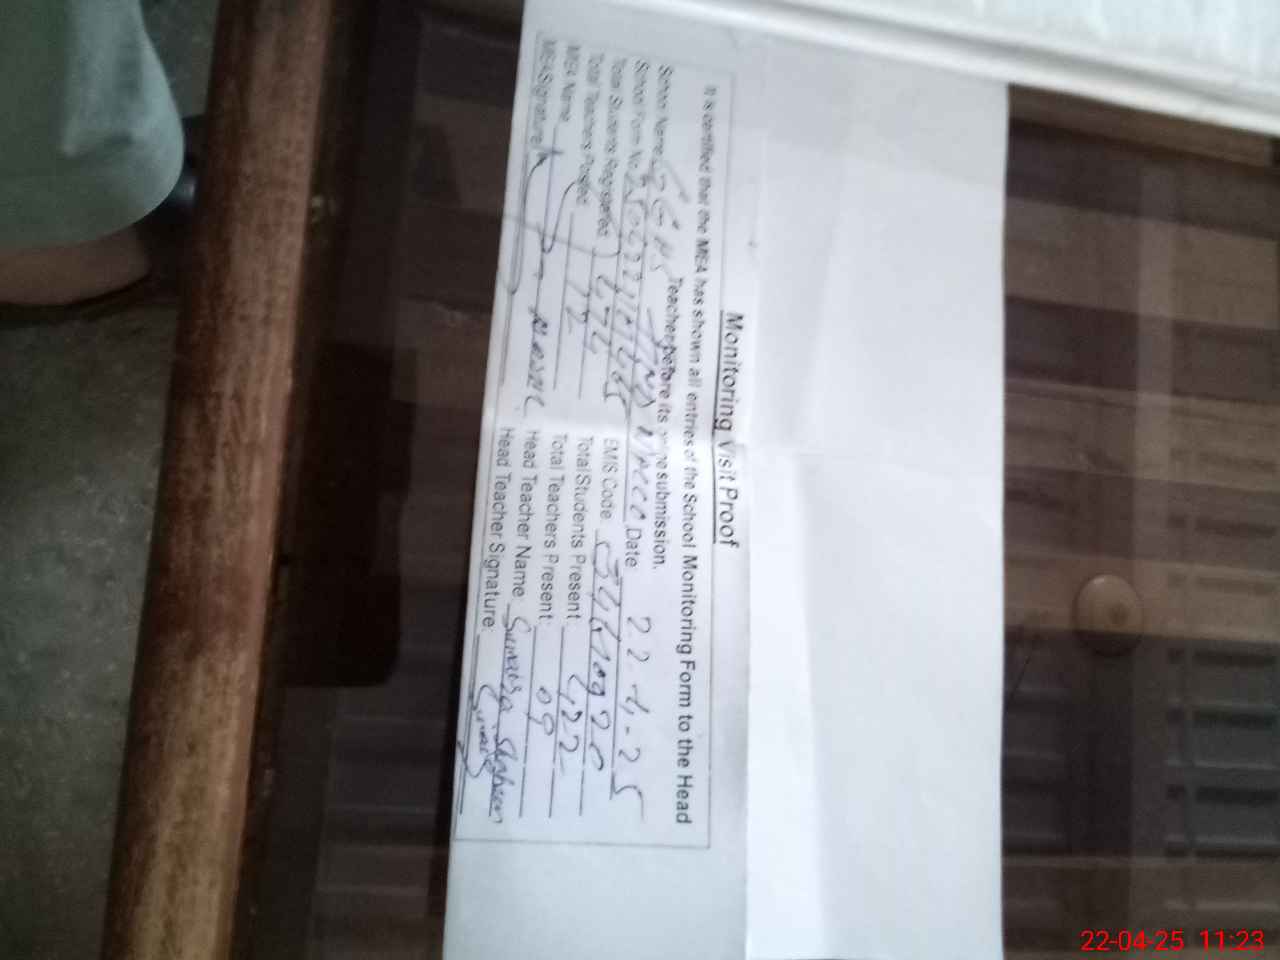 Monitoring Visit Proof
It is certified that the MEA has shown all entries of the School Monitoring Form to the Head
Teacher before its submission.
School Name Date 22-4-25
School Form No. EMIS Code
Total Students Registered 474 Total Students Present 422
Total Teachers Posted 12 Total Teachers Present: 09
MEA Name Head Teacher Name Sumaira Shaheen
MEA Signature Head Teacher Signature:
22-04-25 11:23